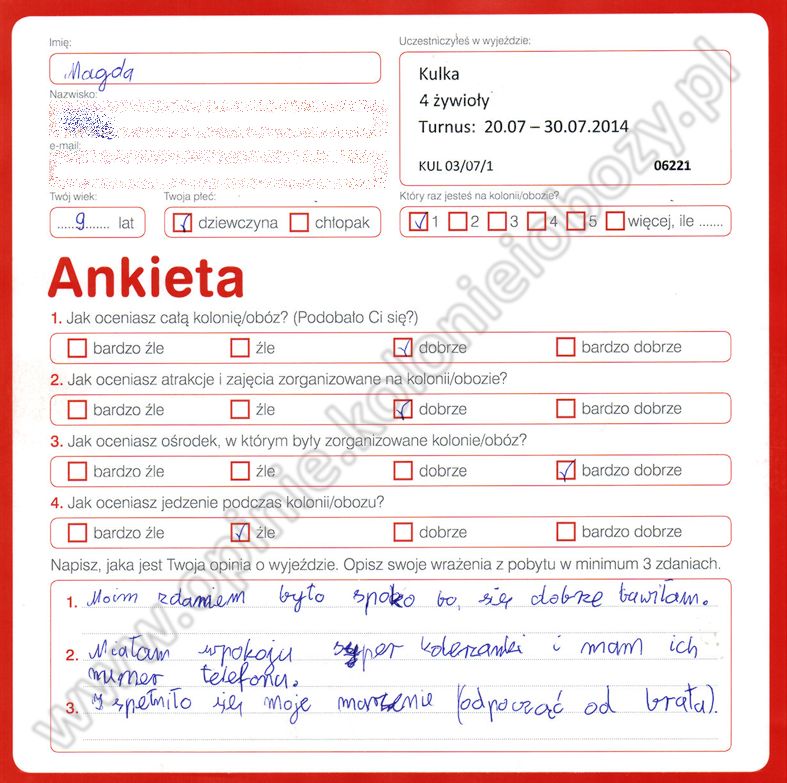 Imię:
Magda
Nazwisko:
e-mail:
Twój wiek:
9 lat
Twoja płeć:
dziewczyna chłopak
Uczestniczyłeś w wyjeździe:
Kulka
4 żywioły
Turnus: 20.07 – 30.07.2014
KUL 03/07/1 06221
Który raz jesteś na kolonii/obozie?
1 2 3 4 5 więcej, ile .......
Ankieta
1. Jak oceniasz całą kolonię/obóz? (Podobało Ci się?)
bardzo źle źle dobrze bardzo dobrze
2. Jak oceniasz atrakcje i zajęcia zorganizowane na kolonii/obozie?
bardzo źle źle dobrze bardzo dobrze
3. Jak oceniasz ośrodek, w którym były zorganizowane kolonie/obóz?
bardzo źle źle dobrze bardzo dobrze
4. Jak oceniasz jedzenie podczas kolonii/obozu?
bardzo źle źle dobrze bardzo dobrze
Napisz, jaka jest Twoja opinia o wyjeździe. Opisz swoje wrażenia z pobytu w minimum 3 zdaniach.
1. Moim zdaniem było spoko bo, się dobrze bawiłam.
2. Miałam wpokoju super koleżanki i mam ich
numer telefonu.
3. I spełniło się moje marzenie (odpocząć od brata).
www.opinie.kolonieiobozy.pl